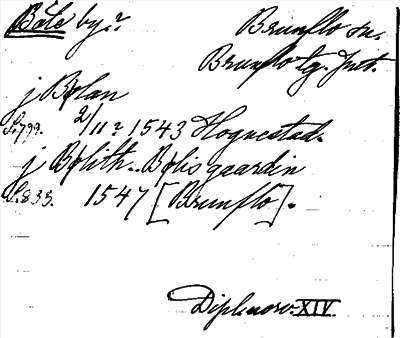 Böle by.
Brunflo sn.
Brunflo tg. Jmt.
j Bølan
S. 799. 2/11 1543 Hognestad.
j Bølith.. Bølis gaardin
S. 833. 1547 [Brunflo].
Dipl. norv. XIV.